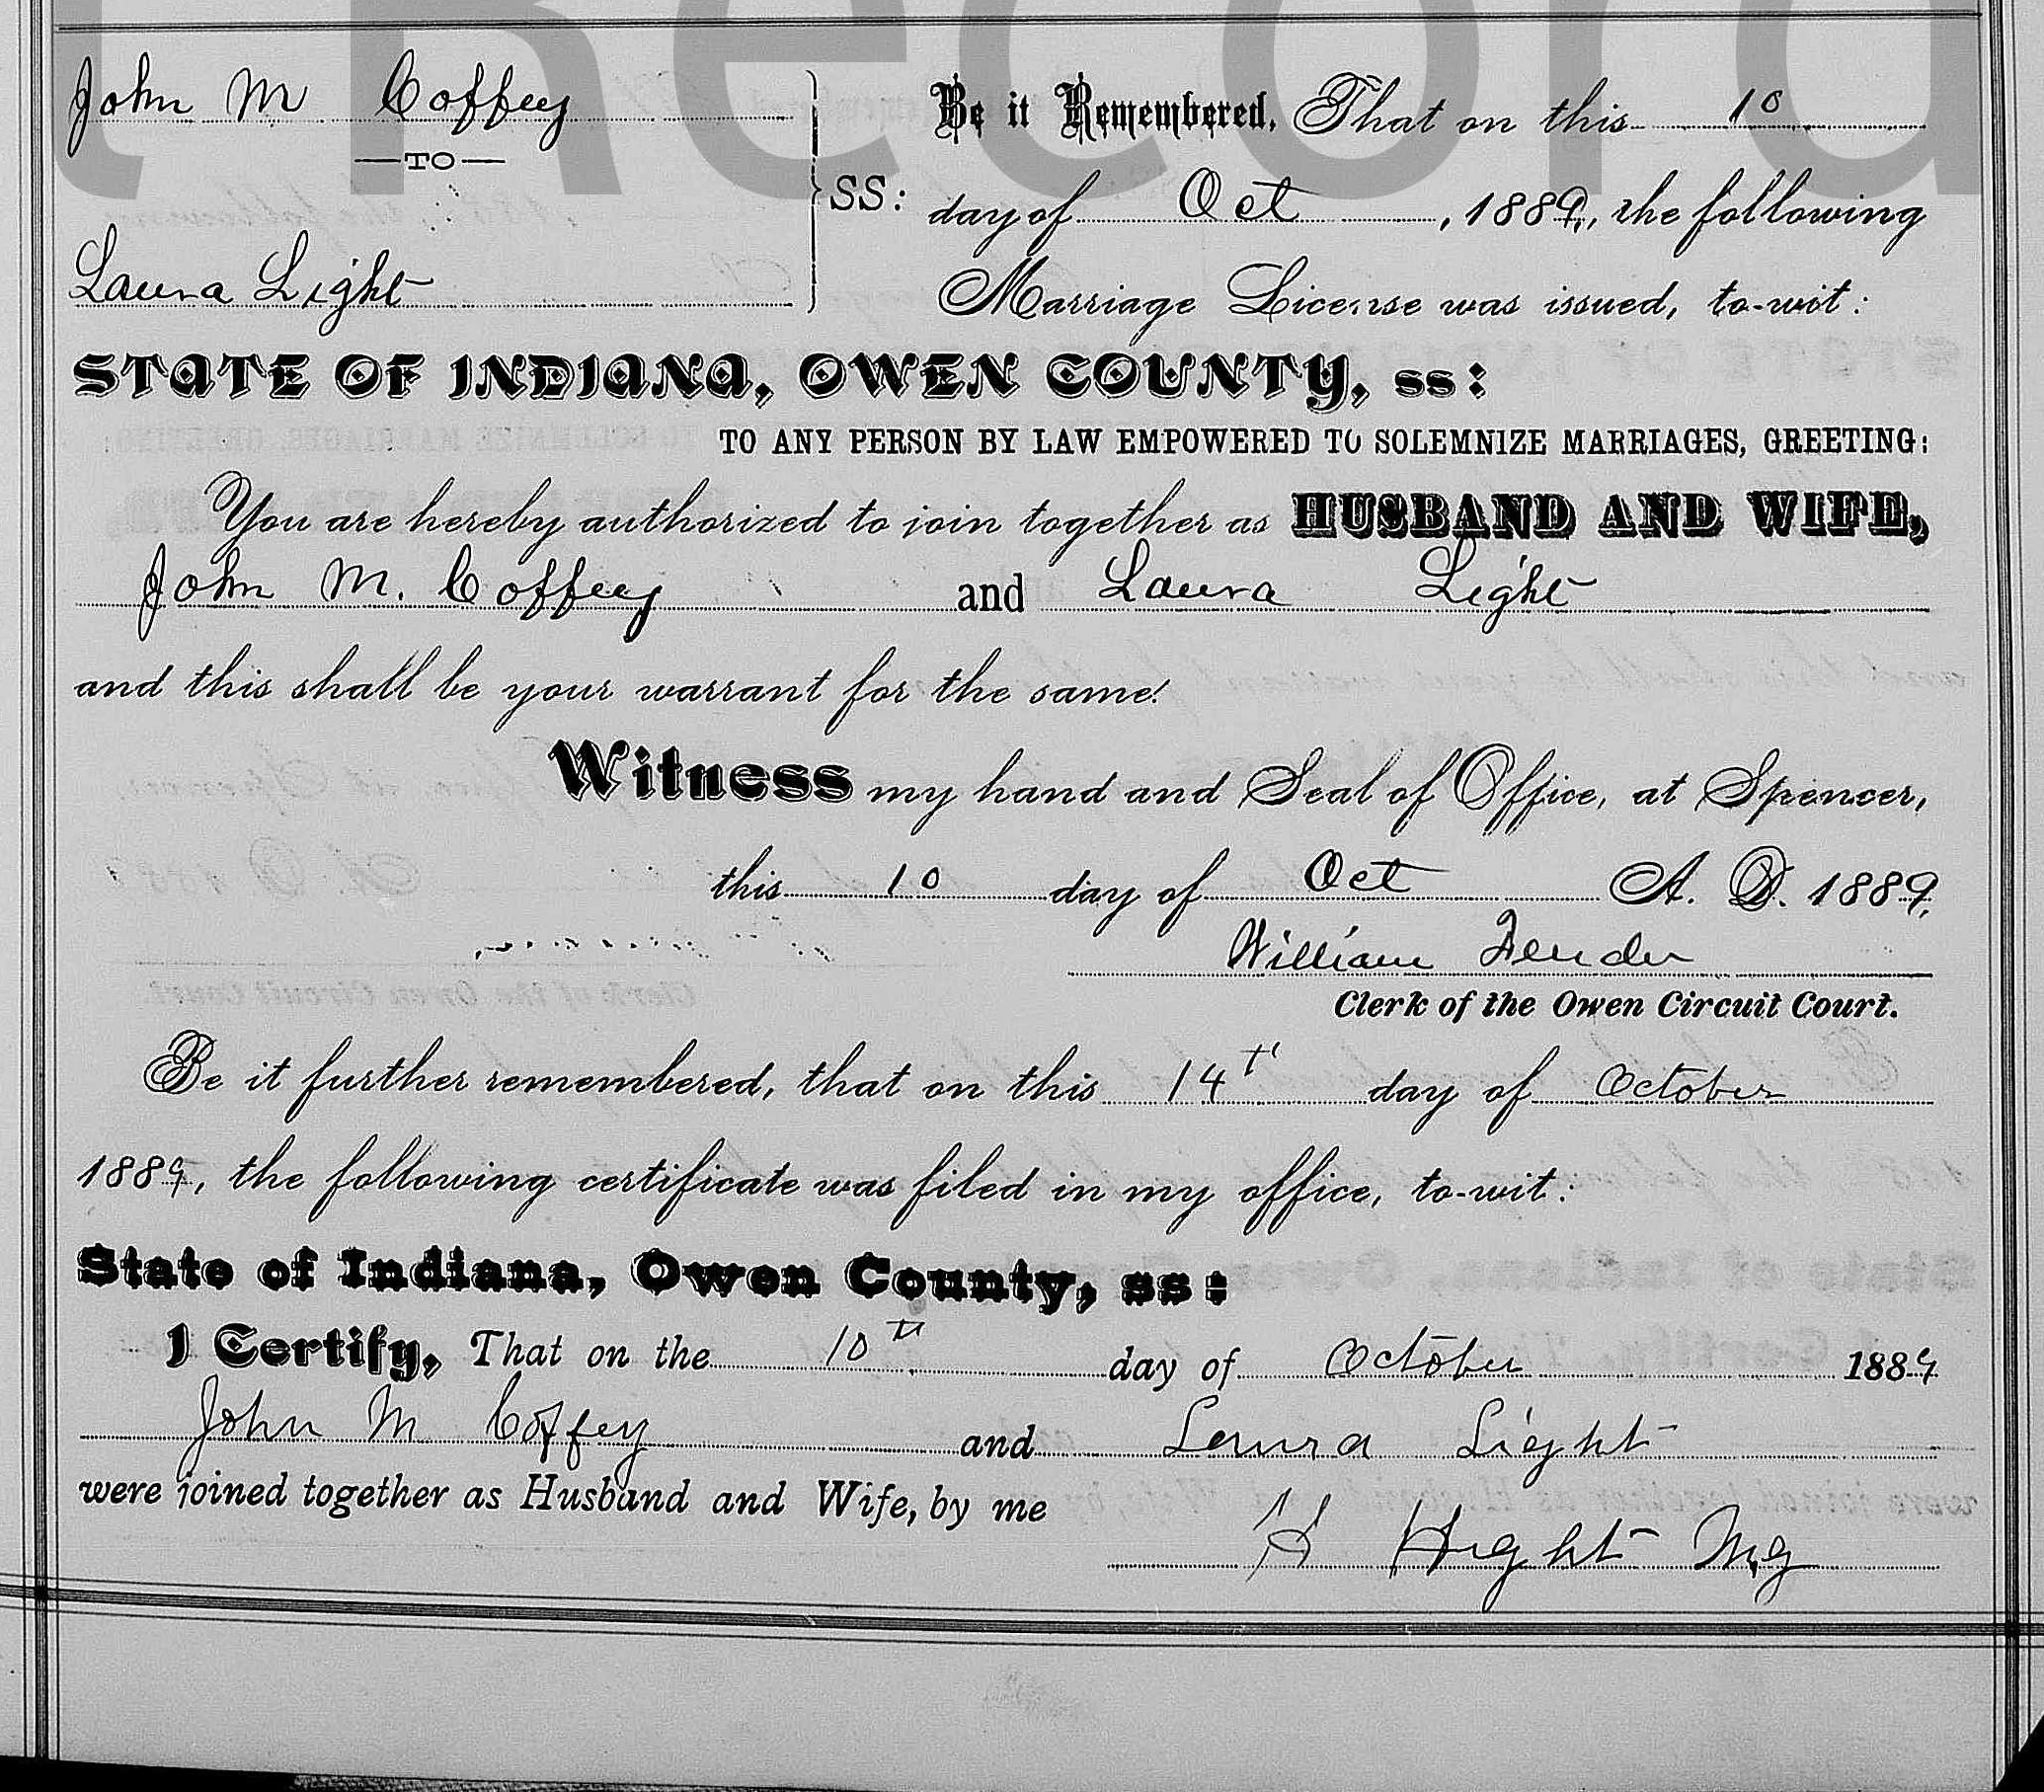 t Record
John M Coffey
Be it Remembered, That on this 10
—TO—
SS: day of Oct , 1889, the following
Laura Light
Marriage License was issued, to-wit:
STATE OF INDIANA, OWEN COUNTY, ss:
TO ANY PERSON BY LAW EMPOWERED TO SOLEMNIZE MARRIAGES, GREETING:
You are hereby authorized to join together as HUSBAND AND WIFE,
John M. Coffey and Laura Light
and this shall be your warrant for the same.
Witness my hand and Seal of Office, at Spencer,
this 10 day of Oct A. D. 1889,
William Fender
Clerk of the Owen Circuit Court.
Be it further remembered, that on this 14th day of October
1889, the following certificate was filed in my office, to-wit:
State of Indiana, Owen County, ss:
I Certify, That on the 10th day of October 1889
John M Coffey and Laura Light
were joined together as Husband and Wife, by me
H Hight Mg